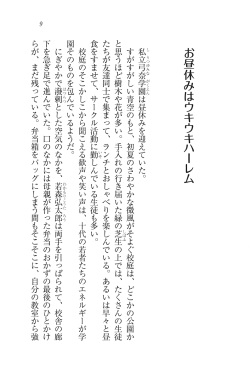 お昼休みはウキウキハーレム
私立弓奈学園は昼休みを迎えていた。
すがすがしい青空のもと、初夏のさわやかな微風がそよぐ校庭は、どこかの公園か
と思うほど樹木や花が多い。手入れの行き届いた緑の芝生の上では、たくさんの生徒
たちが友達同士で集まって、ランチとおしゃべりを楽しんでいる。あるいは早々と昼
食をすませて、サークル活動に勤しんでいる生徒も多い。
校庭のそこかしこから聞こえる歓声や笑い声は、十代の若者たちのエネルギーが学
園そのものを包んでいるようだ。
にぎやかで潑剌とした空気のなかを、若森弘太郎は両手を引っぱられて、校舎の廊
下を急ぎ足で進んでいた。口のなかには母親が作った弁当のおかずの最後のひとかけ
らが、まだ残っている。弁当箱をバッグにしまう間もそこそこに、自分の教室から強
9